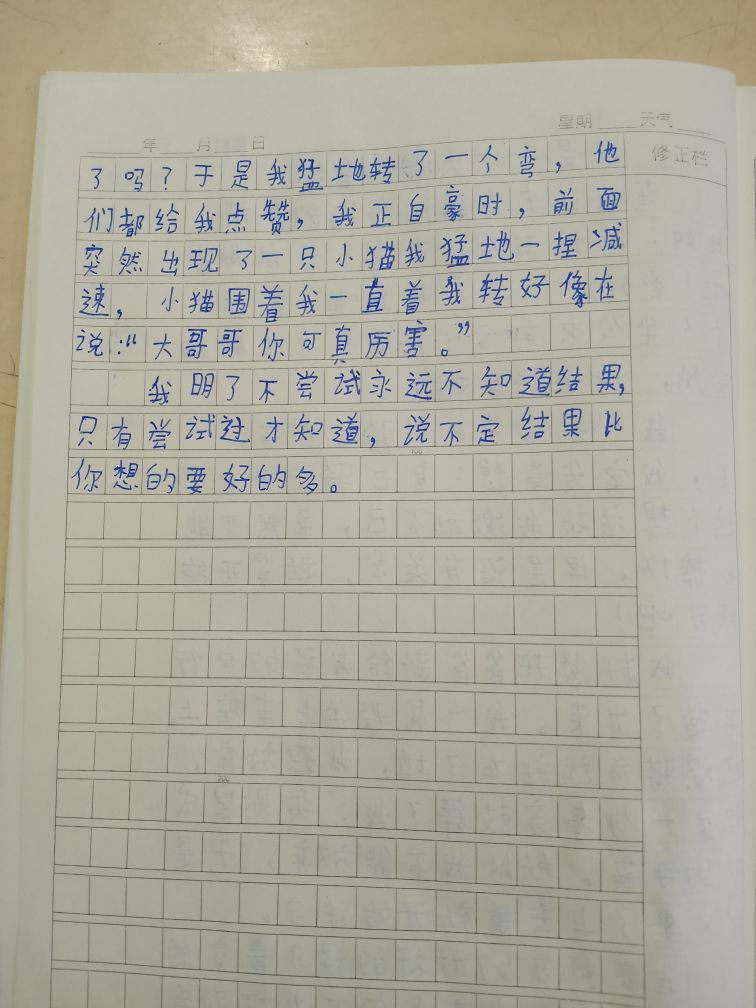 年 月 日 星期 天气
修正栏
了吗？于是我猛地转了一个弯，他
们都给我点赞，我正自豪时，前面
突然出现了一只小猫我猛地一捏减
速，小猫围着我一直着我转好像在
说：“大哥哥你可真厉害。”
我明了不尝试永远不知道结果，
只有尝试过才知道，说不定结果比
你想的要好的多。
100
200